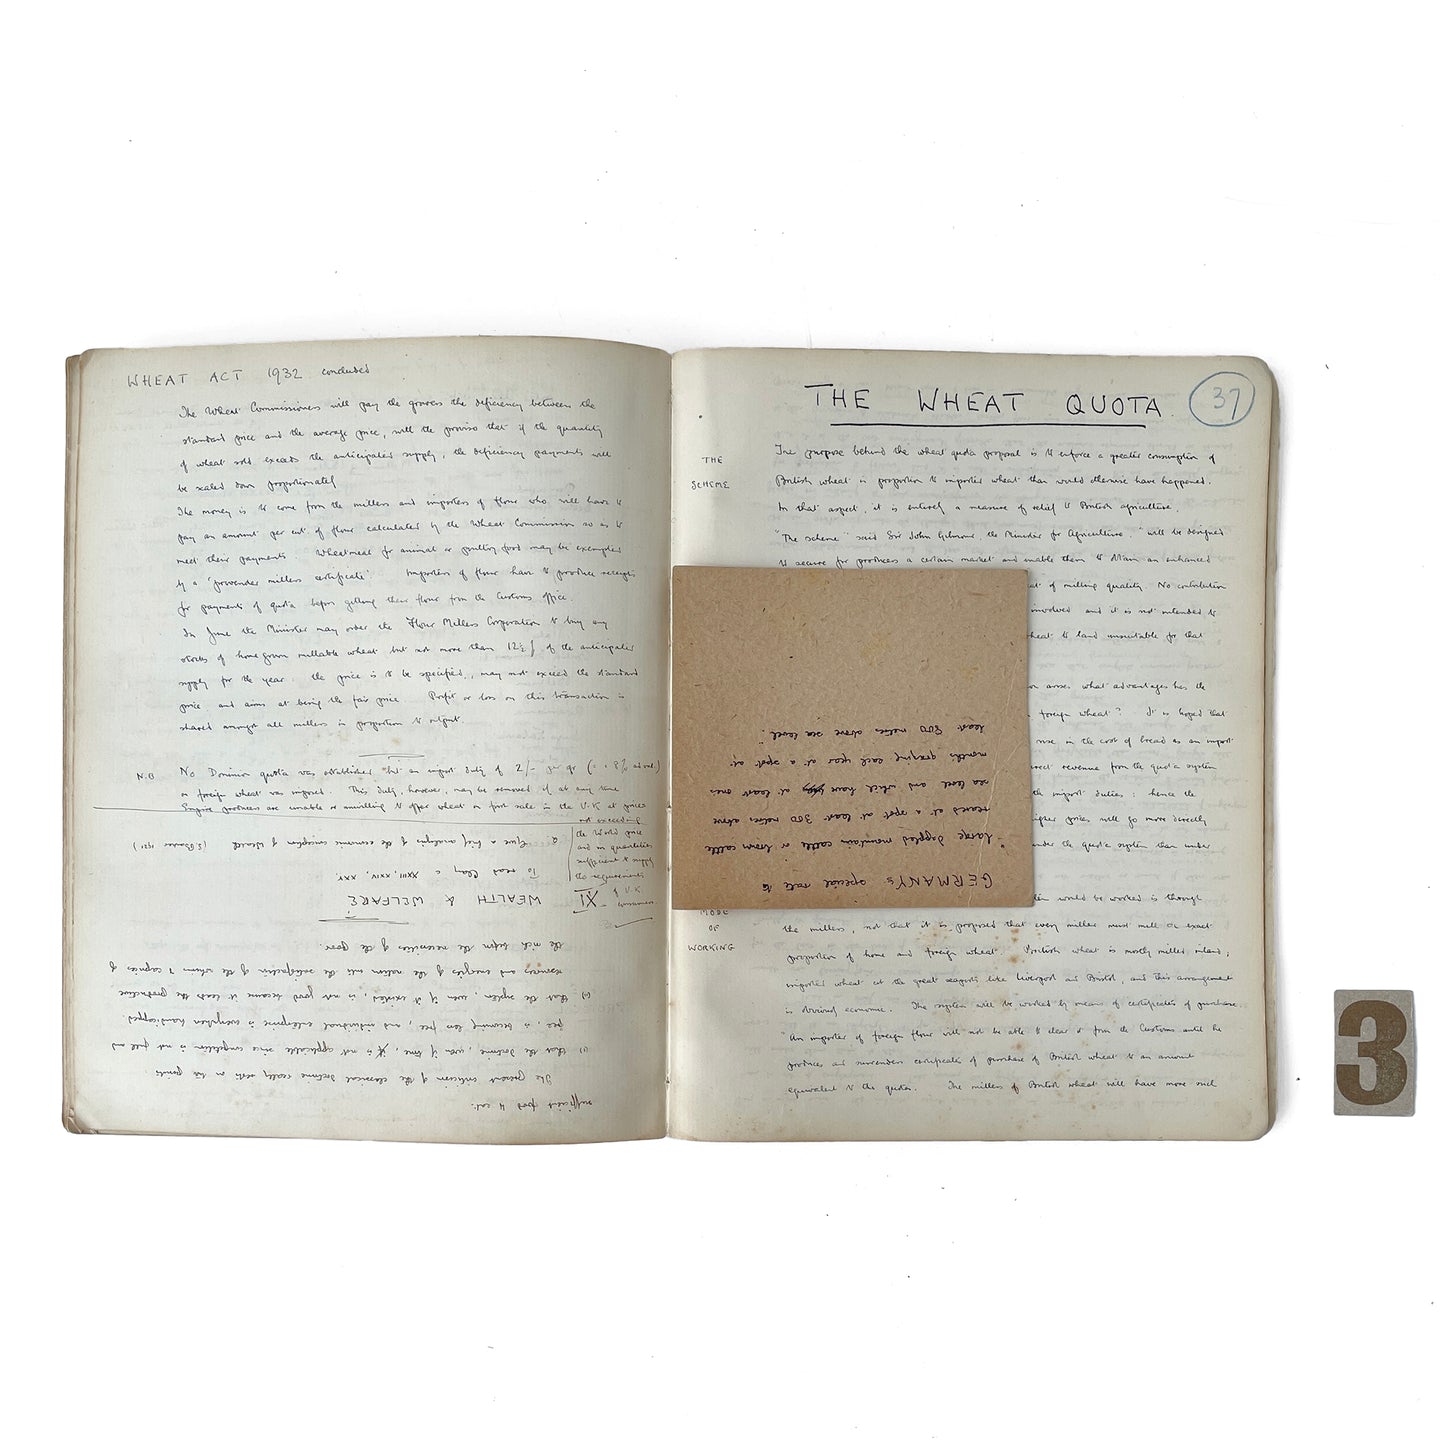 WHEAT ACT 1932 concluded
The Wheat Commissioners will pay the growers the deficiency between the
standard price and the average price, with the proviso that if the quantity
of wheat sold exceeds the anticipated supply, the deficiency payments will
be scaled down proportionately
The money is to come from the millers and importers of flour who will have to
pay an amount per cwt of flour calculated by the Wheat Commission so as to
meet their payments. Wheatmeal for animal or poultry food may be exempted
by a "provender millers certificate". Importers of flour have to produce receipts
for payments of quota before getting their flour from the Customs office.
In June the Minister may order the Flour Millers Corporation to buy any
stocks of home grown millable wheat but not more than 12½% of the anticipated
supply for the year. the price is to be specified, may not exceed the standard
price and aims at being the fair price. Profit or loss on this transaction is
shared amongst all millers in proportion to output.
N.B. No Dominion quota was established but an import duty of 2/- per qr
on foreign wheat was imposed. This duty, however, may be removed if at any time
Empire producers are unable or unwilling to offer wheat on first sale in the U.K at prices
not exceeding
the World price
and in quantities
sufficient to supply
the requirements
of U.K.
consumers
sufficient food to eat.
The present criticism of the classical doctrine really rests on two points
(1) that the doctrine, even if true, is not applicable since competition is not full and
free, is becoming less free, and individual enterprise is everywhere handicapped.
(2) that the system even if it existed, is not good because it leads the productive
resources and energies of the nation into the satisfaction of the whims & caprices of
the rich before the necessities of the poor.
XI WEALTH & WELFARE
To read Clay c XXIII, XXIV, XXV.
Q. Give a brief analysis of the economic conception of Wealth
THE WHEAT QUOTA 37
THE
SCHEME
The purpose behind the wheat quota proposal is to enforce a greater consumption of
British wheat in proportion to imported wheat than would otherwise have happened.
In that aspect, it is entirely a measure of relief to British agriculture.
"The scheme" said Sir John Gilmour, the Minister for Agriculture, "will be designed
to secure for producers a certain market and enable them to obtain an enhanced
of milling quality. No contribution
involved and it is not intended to
wheat to land unsuitable for that
arises what advantages has the
foreign wheat? It is hoped that
rise in the cost of bread as an import
revenue from the quota system
import duties: hence the
higher prices will go more directly
under the quota system than under
GERMANY'S special rate to
"large dappled mountain cattle or brown cattle
reared at a spot at least 300 metres above
sea level and which have at least one
months grazing each year at a spot at
least 800 metres above sea level".
MODE
OF
WORKING
would be worked is through
the millers, not that it is proposed that every miller must mill an exact
proportion of home and foreign wheat. British wheat is mostly milled inland;
imported wheat at the great seaports like Liverpool and Bristol, and this arrangement
is obviously economic. The system will be worked by means of certificates of purchase.
"An importer of foreign flour will not be able to clear it from the Customs until he
produces and surrenders certificates of purchase of British wheat to an amount
equivalent to the quota. The millers of British wheat will have more such
3